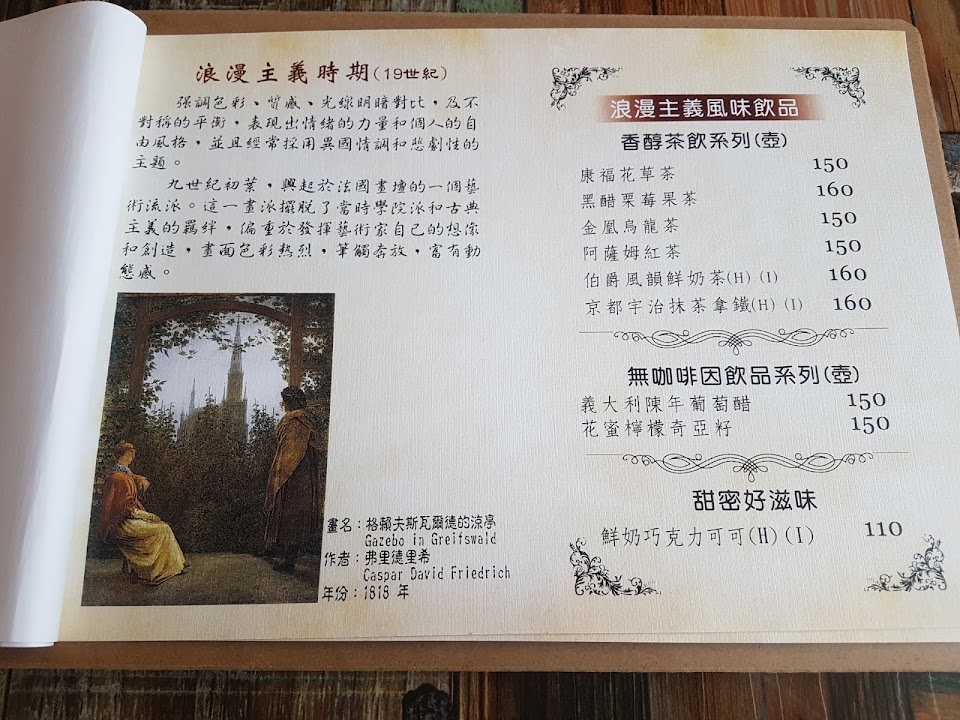 浪漫主義時期(19世紀)
強調色彩、質感、光線明暗對比，及不
對稱的平衡，表現出情緒的力量和個人的自
由風格，並且經常採用異國情調和悲劇性的
主題。
九世紀初葉，興起於法國畫壇的一個藝
術流派。這一畫派擺脫了當時學院派和古典
主義的羈絆，偏重於發揮藝術家自己的想像
和創造，畫面色彩熱烈，筆觸奔放，富有動
態感。
畫名：格賴夫斯瓦爾德的涼亭
Gazebo in Greifswald
作者：弗里德里希
Caspar David Friedrich
年份：1818 年
浪漫主義風味飲品
香醇茶飲系列(壺)
康福花草茶 150
黑醋栗莓果茶 160
金凰烏龍茶 150
阿薩姆紅茶 150
伯爵風韻鮮奶茶(H) (I) 160
京都宇治抹茶拿鐵(H) (I) 160
無咖啡因飲品系列(壺)
義大利陳年葡萄醋 150
花蜜檸檬奇亞籽 150
甜密好滋味
鮮奶巧克力可可(H) (I) 110